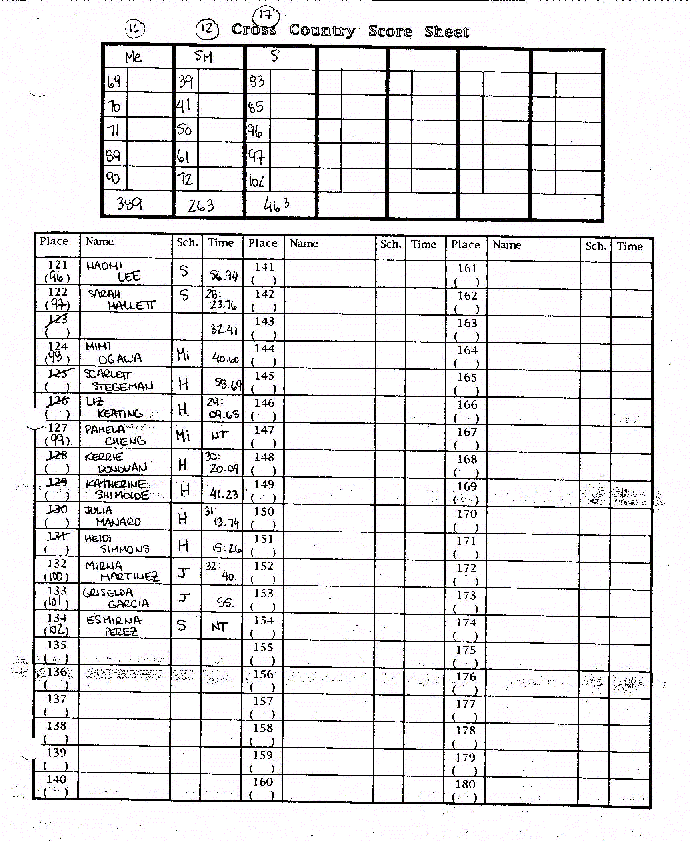 16 12 17
Cross Country Score Sheet
Me SM S
69 39 83
70 41 85
71 50 96
89 61 97
90 72 102
389 263 463
Place Name Sch. Time Place Name Sch. Time Place Name Sch. Time
121 (96) NAOMI LEE S 56.74 141 ( ) 161 ( )
122 (97) SARAH HALLETT S 28: 23.76 142 ( ) 162 ( )
123 ( ) 32.41 143 ( ) 163 ( )
124 (98) MIMI OGAWA Mi 40.60 144 ( ) 164 ( )
125 ( ) SCARLETT STEGEMAN H 58.69 145 ( ) 165 ( )
126 ( ) LIZ KEATING H 29: 09.65 146 ( ) 166 ( )
127 (99) PAMELA CHENG Mi NT 147 ( ) 167 ( )
128 ( ) KERRIE DONOVAN H 30: 20.09 148 ( ) 168 ( )
129 ( ) KATHERINE H 41.23 149 ( ) 169 ( )
130 ( ) JULIA MANARD H 31: 13.74 150 ( ) 170 ( )
131 ( ) HEIDI SIMMONS H 15:26 151 ( ) 171 ( )
132 (100) MIRNA MARTINEZ J 32: 40. 152 ( ) 172 ( )
133 (101) GRISELDA GARCIA J 55. 153 ( ) 173 ( )
134 (102) ESMIRNA PEREZ S NT 154 ( ) 174 ( )
135 ( ) 155 ( ) 175 ( )
136 ( ) 156 ( ) 176 ( )
137 ( ) 157 ( ) 177 ( )
138 ( ) 158 ( ) 178 ( )
139 ( ) 159 ( ) 179 ( )
140 ( ) 160 ( ) 180 ( )